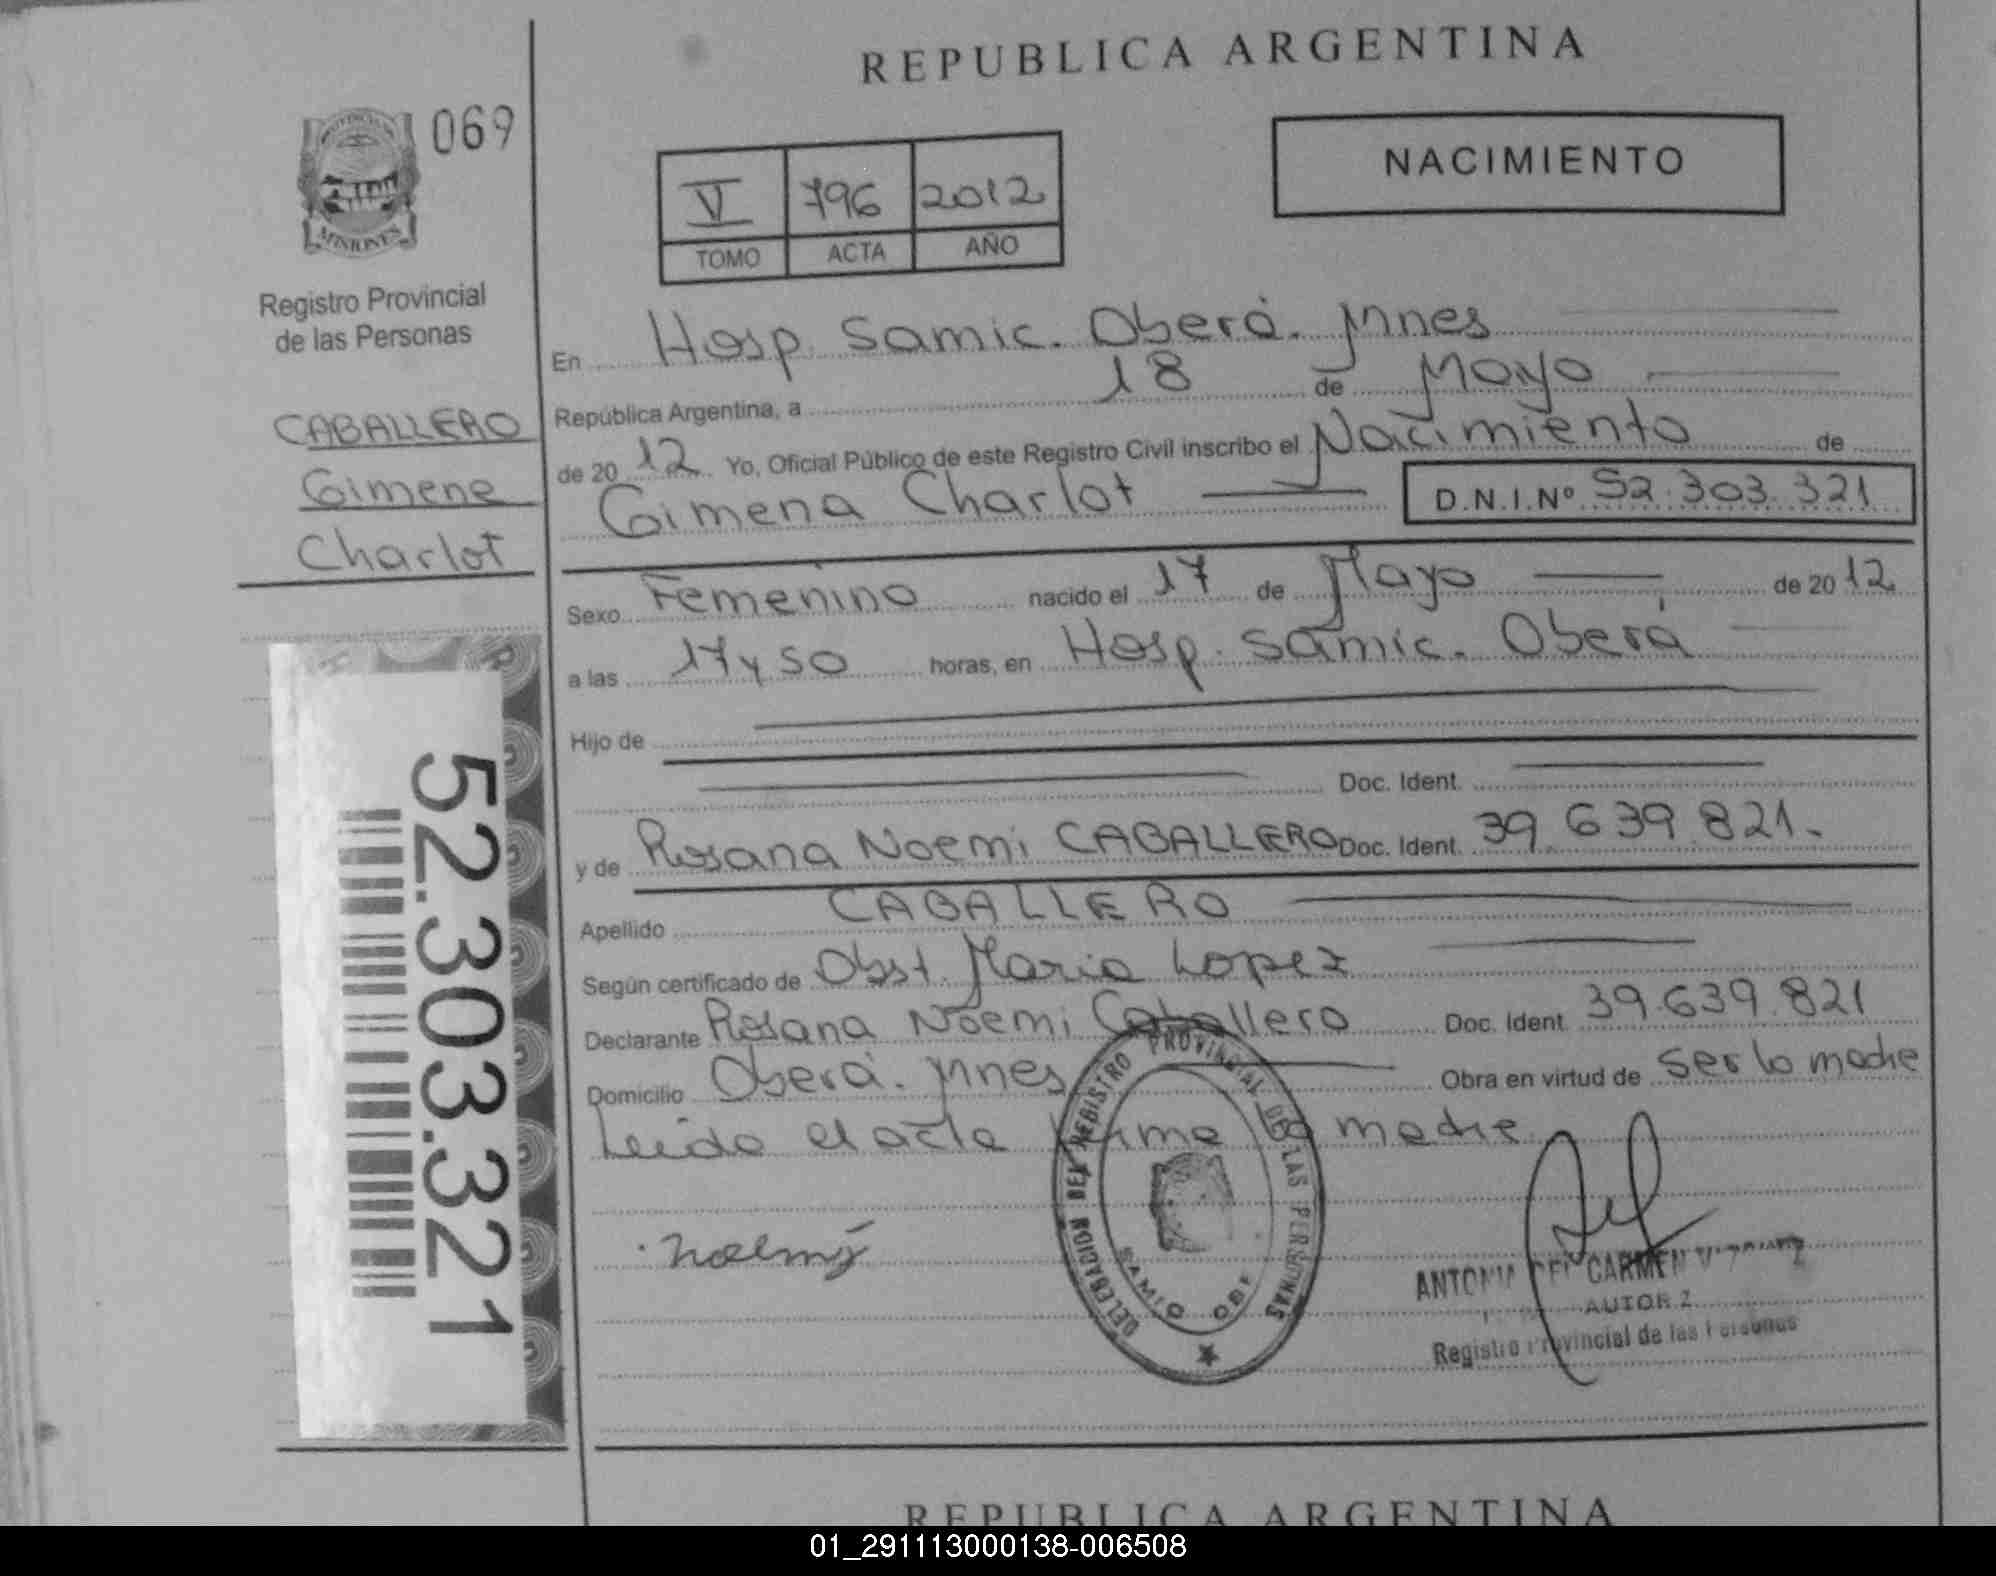 REPUBLICA ARGENTINA
069
NACIMIENTO
V 796 2012
TOMO ACTA AÑO
MISIONES
Registro Provincial
de las Personas
CABALLERO
Gimena
Charlot
En Hosp. Samic. Oberá. Mnes
República Argentina, a 18 de Mayo
de 20 12 Yo, Oficial Público de este Registro Civil inscribo el Nacimiento de
Gimena Charlot D.N.I.Nº 52.303.321
Sexo Femenino nacido el 17 de Mayo de 20 12
a las 17 y 50 horas, en Hosp. Samic. Oberá
Hijo de
Doc. Ident.
y de Rosana Noemi CABALLERO Doc. Ident. 39.639.821.
Apellido CABALLERO
Según certificado de Obst. Maria Lopez
Declarante Rosana Noemi Caballero Doc. Ident. 39.639.821
Domicilio Oberá. Mnes Obra en virtud de ser la madre
Leida el acta firma la madre
52.303.321
Noemi
DELEGACION DEL REGISTRO PROVINCIAL DE LAS PERSONAS
SAMIC
ANTONIA DEL CARMEN
Registro Provincial de las Personas
REPUBLICA ARGENTINA
01_291113000138-006508